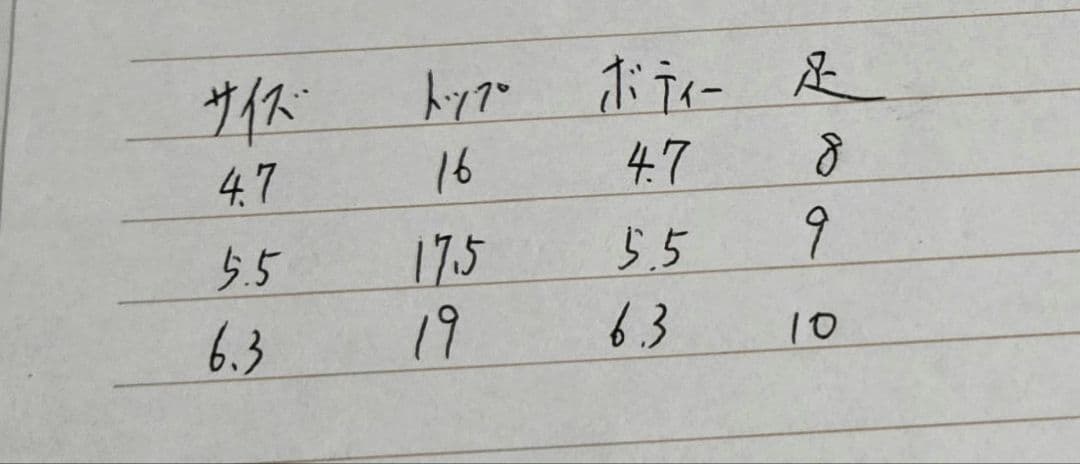 サイズ トップ ボディー 足
4.7 16 4.7 8
5.5 17.5 5.5 9
6.3 19 6.3 10